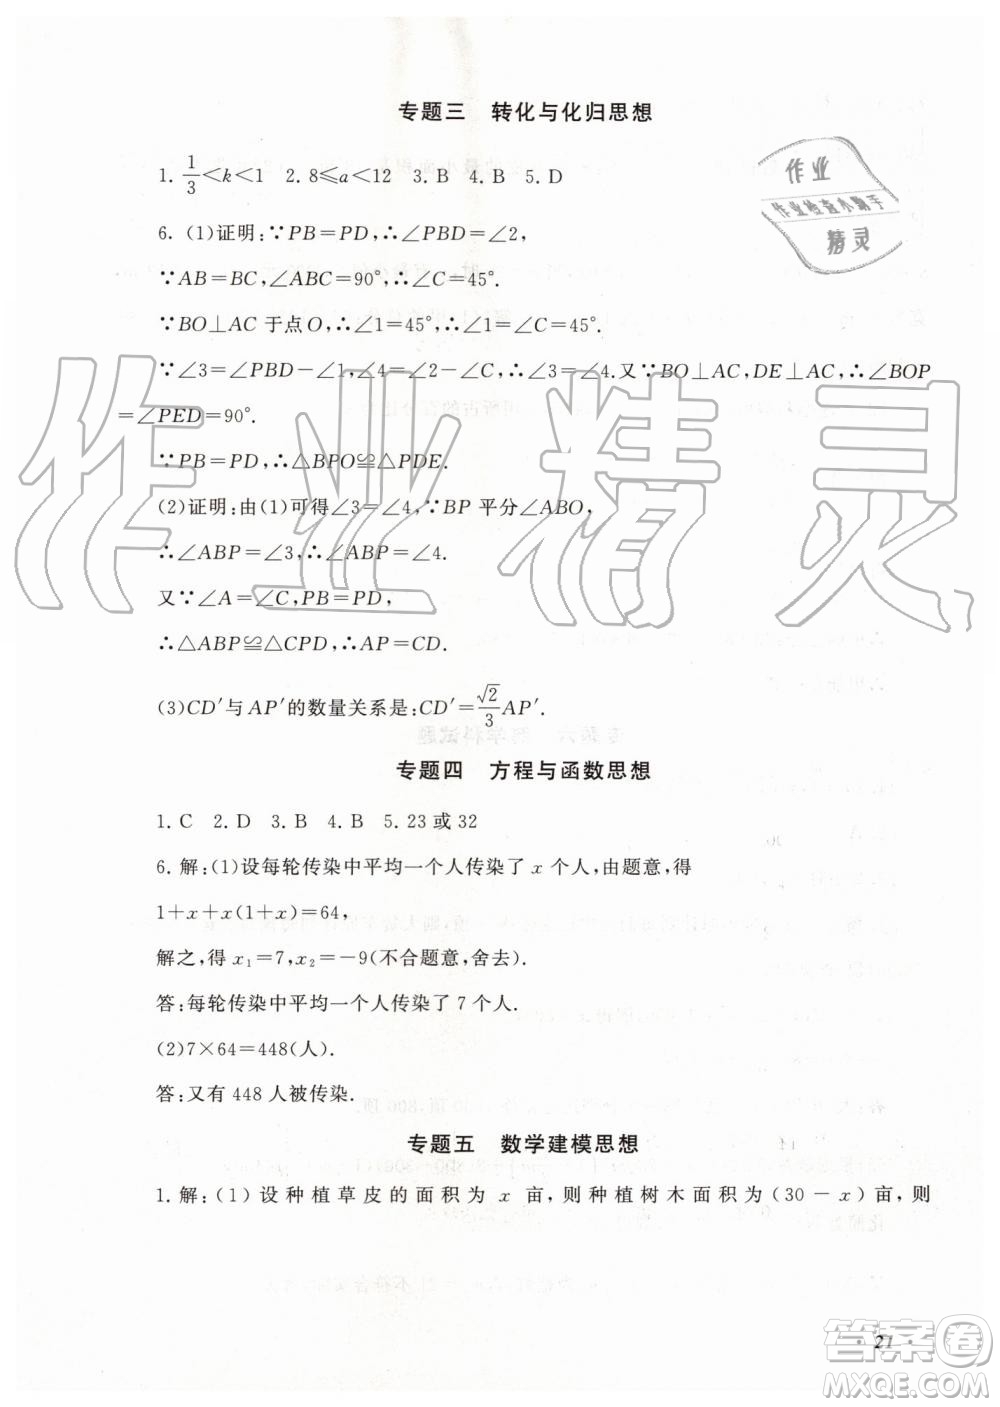 专题三 转化与化归思想
1. 1/3<k<1 2. 8≤a<12 3. B 4. B 5. D
6. (1)证明:∵PB=PD,∴∠PBD=∠2,
∵AB=BC,∠ABC=90°,∴∠C=45°.
∵BO⊥AC于点O,∴∠1=45°,∴∠1=∠C=45°.
∵∠3=∠PBD-∠1,∠4=∠2-∠C,∴∠3=∠4.又∵BO⊥AC,DE⊥AC,∴∠BOP
=∠PED=90°.
∵PB=PD,∴△BPO≌△PDE.
(2)证明:由(1)可得∠3=∠4,∵BP平分∠ABO,
∴∠ABP=∠3,∴∠ABP=∠4.
又∵∠A=∠C,PB=PD,
∴△ABP≌△CPD,∴AP=CD.
(3)CD′与AP′的数量关系是:CD′=√2/3AP′.
专题四 方程与函数思想
1. C 2. D 3. B 4. B 5. 23或32
6. 解:(1)设每轮传染中平均一个人传染了x个人,由题意,得
1+x+x(1+x)=64,
解之,得x₁=7,x₂=-9(不合题意,舍去).
答:每轮传染中平均一个人传染了7个人.
(2)7×64=448(人).
答:又有448人被传染.
专题五 数学建模思想
1. 解:(1)设种植草皮的面积为x亩,则种植树木面积为(30-x)亩,则
· 21 ·
作业
作业检查小助手
精灵
作业精灵
答案圈
MXQE.COM